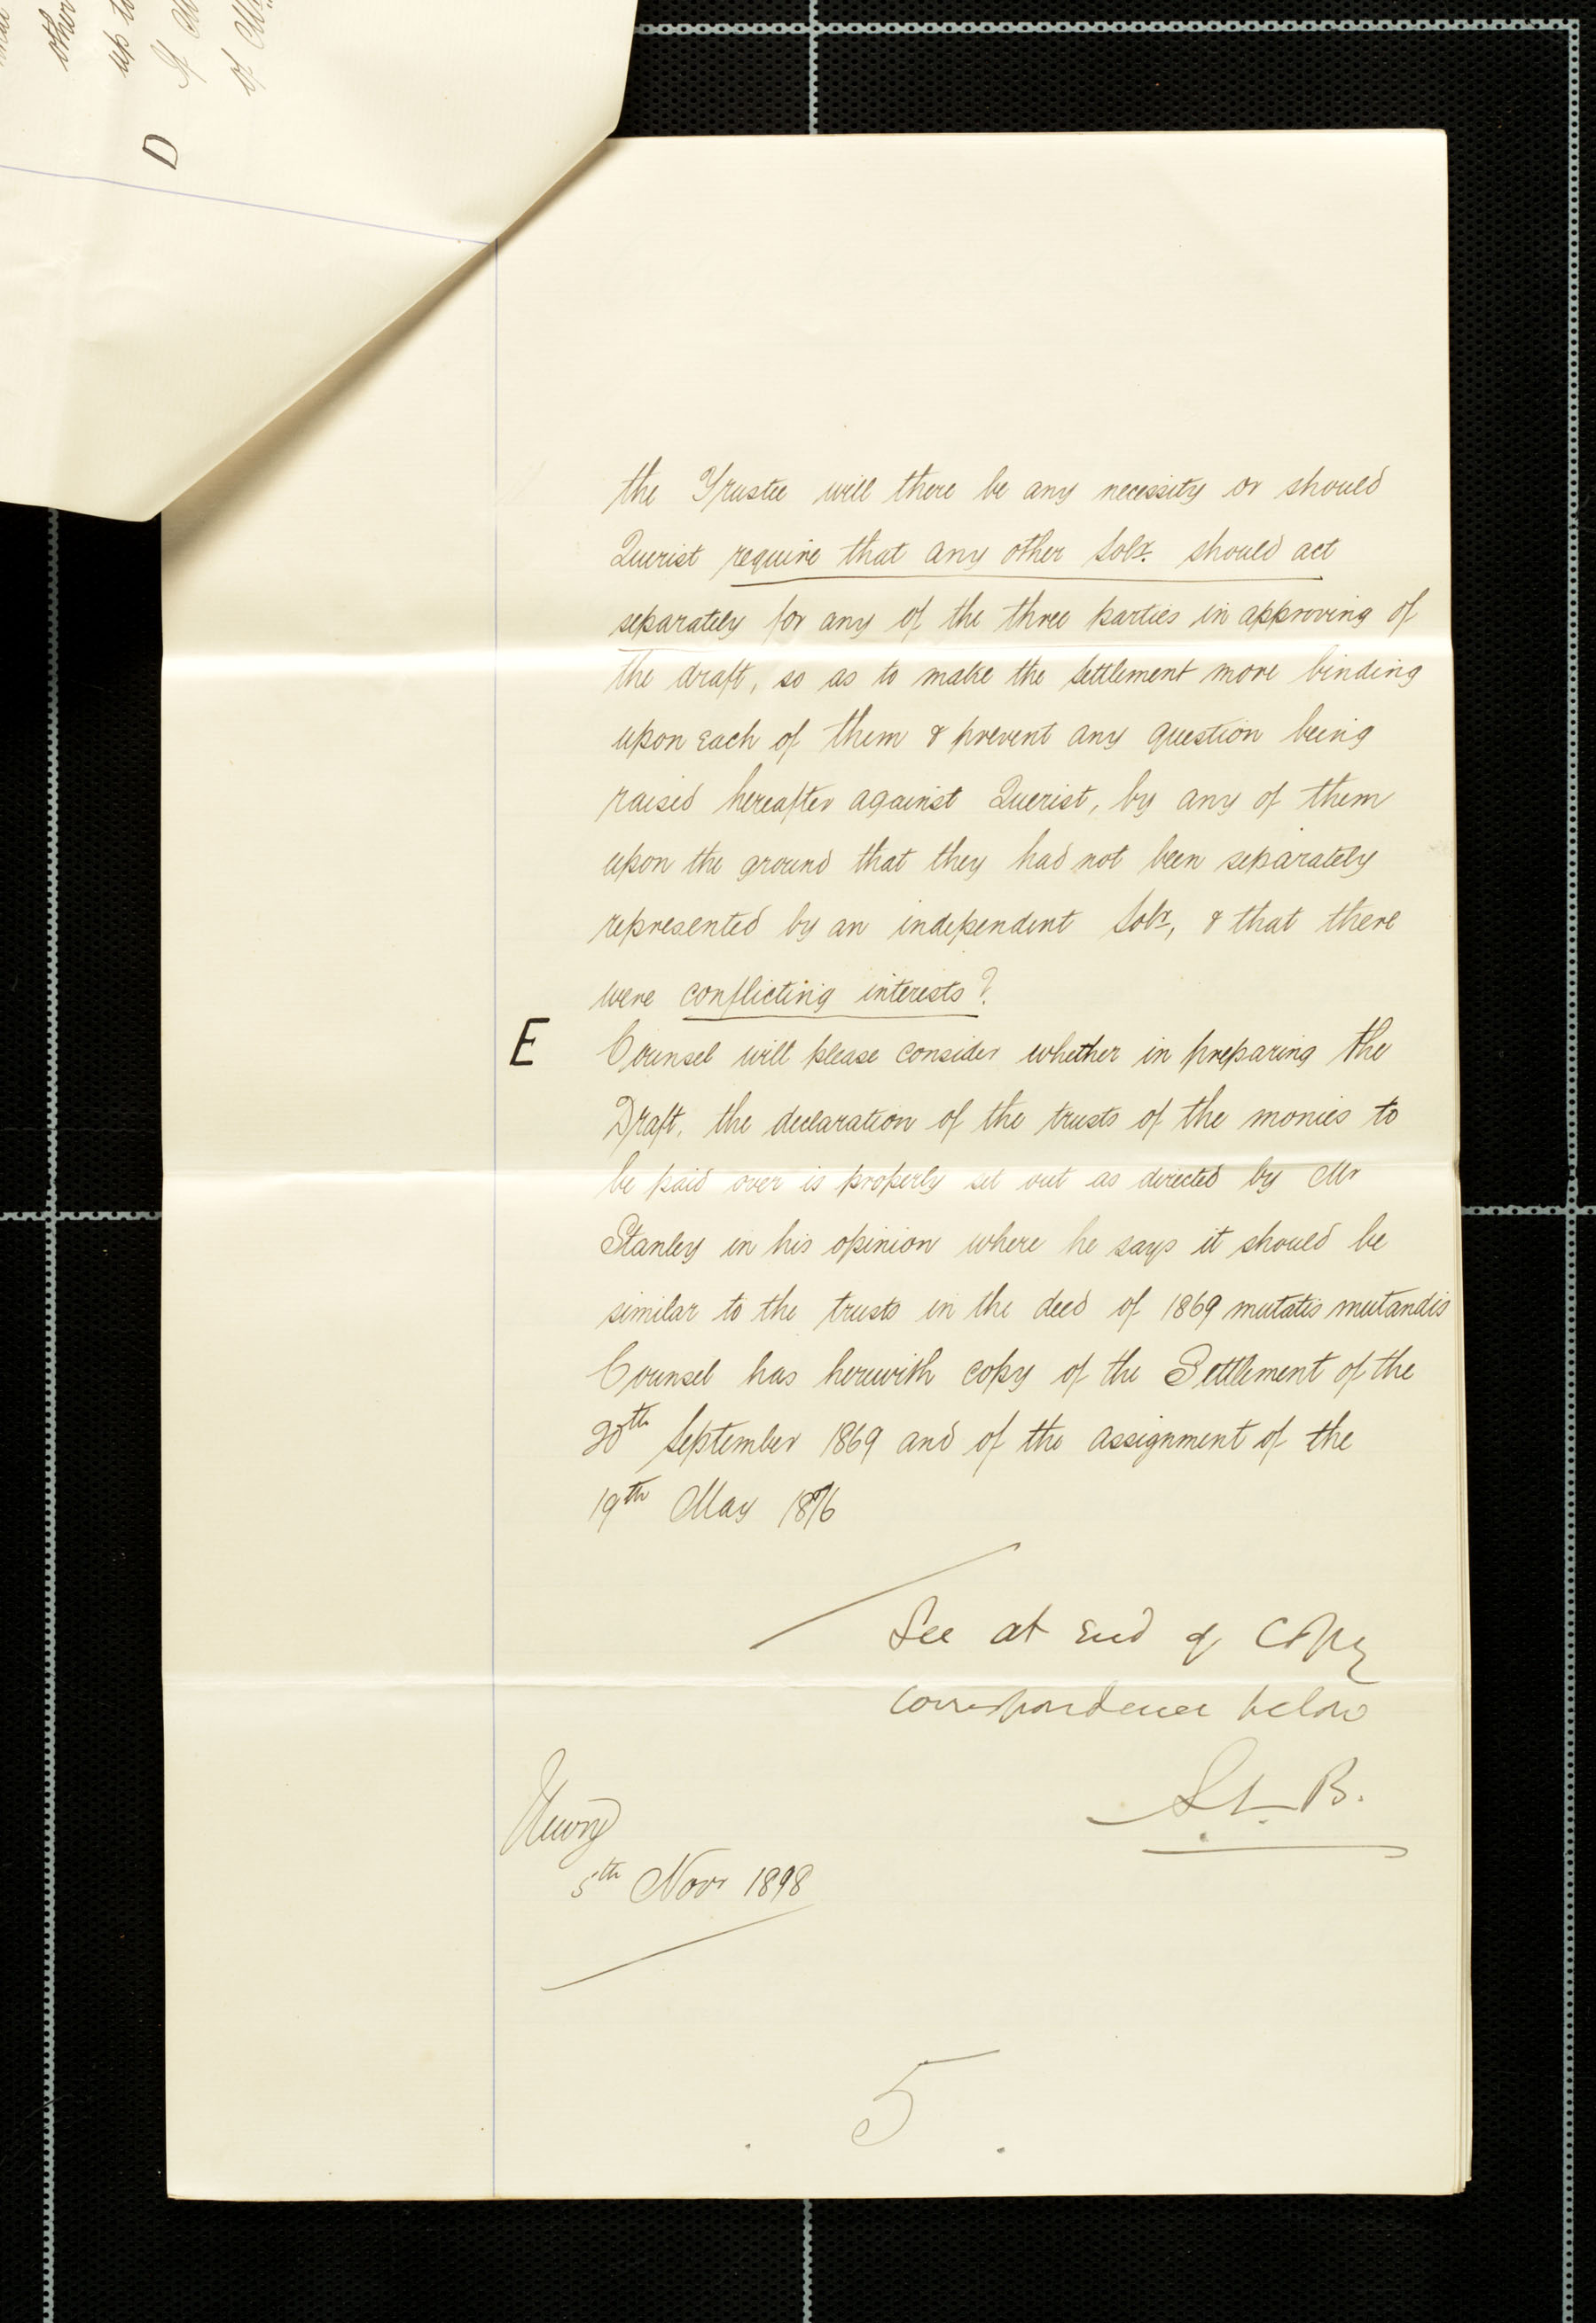 other
up to
D
If
of
the Trustee will there be any necessity or should
Querist require that any other Solr. should act
separately for any of the three parties in approving of
the draft, so as to make the Settlement more binding
upon each of them & prevent any question being
raised hereafter against Querist, by any of them
upon the ground that they had not been separately
represented by an independent Solr, & that there
were conflicting interests?
E Counsel will please consider whether in preparing the
Draft, the declaration of the trusts of the monies to
be paid over is properly set out as directed by Mr
Stanley in his opinion where he says it should be
similar to the trusts in the deed of 1869 mutatis mutandis
Counsel has herewith copy of the Settlement of the
20th September 1869 and of the assignment of the
19th May 1876
See at End of Copy
Correspondence below
S. L. B.
Newry
5th Novr 1898
5